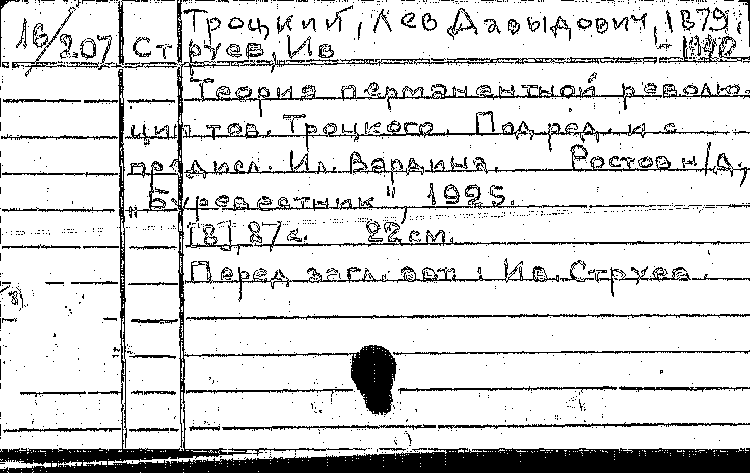 16/207 Троцкий, Лев Давыдович, 1879-1940
Струев, Ив
Теория перманентной револю-
ции тов. Троцкого. Под ред. и с
предисл. Ил. Вардина. Ростов н/Д,
"Буревестник", 1925.
[8], 87 с. 22 см.
Перед загл. авт.: Ив. Струев.